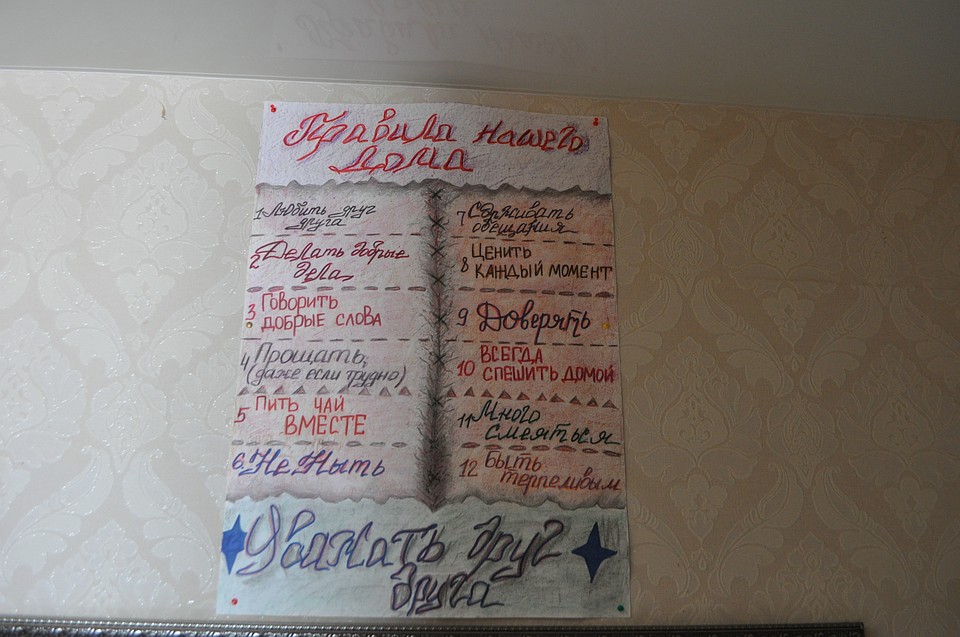 Правила нашего
дома
1 Любить друг
друга
2 Делать добрые
дела,
3 Говорить
добрые слова
4 Прощать,
(даже если трудно)
5 Пить чай
вместе
6. Не Ныть
7 Сдрживать
обещания
8 Ценить
каждый момент
9 Доверять
10 Всегда
спешить домой
11 Много
смеяться
12 Быть
терпеливым
Уважать друг
друга